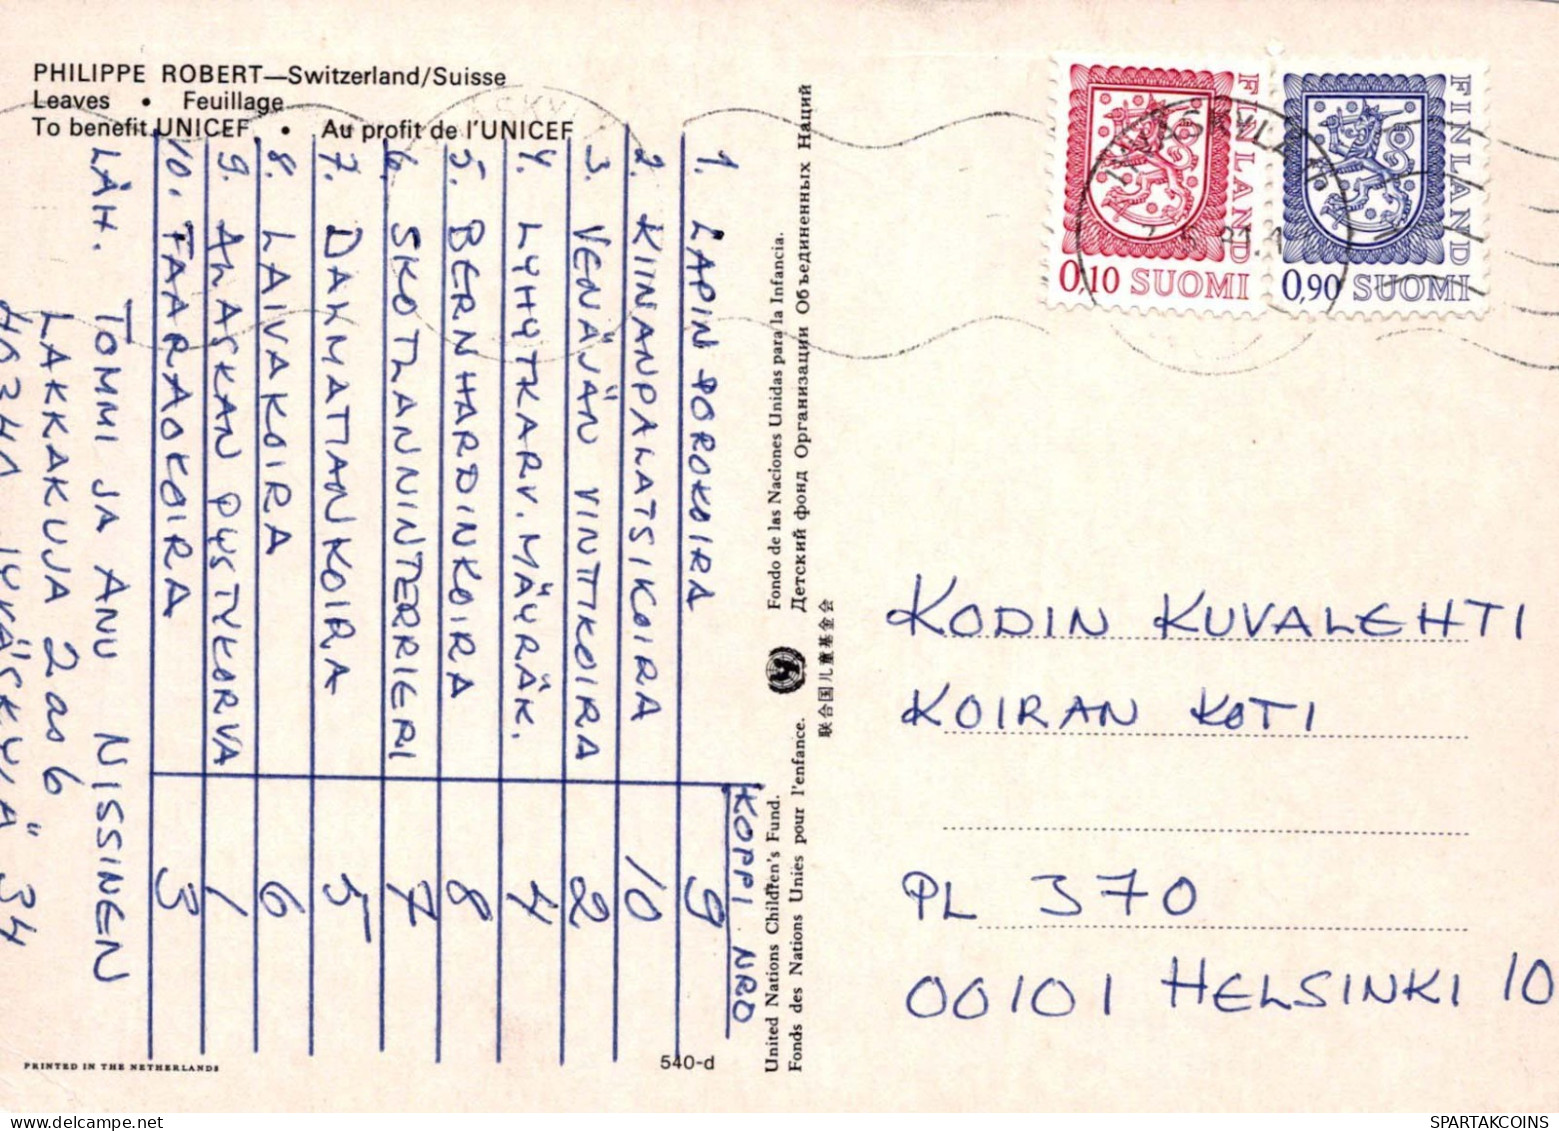 PHILIPPE ROBERT—Switzerland/Suisse
Leaves • Feuillage
To benefit UNICEF • Au profit de l'UNICEF
KOPPI NRO
1. LAPINPOROKOIRA 9
2. KIINANPALATSIKOIRA 10
3. VENÄJÄN VINTTIKOIRA 2
4. LYHYTKARV. MÄYRÄK. 4
5. BERNHARDINKOIRA 8
6. SKOTLANNINTERRIERI 7
7. DALMATIANKOIRA 5
8. LAIVAKOIRA 6
9. ALASKAN PYSTYKORVA 1
10. FAARAOKOIRA 3
LÄH. TOMMI JA ANU NISSINEN
LAKKAKUJA 2 as 6
JYVÄSKYLÄ 34
PRINTED IN THE NETHERLANDS
540-d
Fondo de las Naciones Unidas para la Infancia.
Детский фонд Организации Объединенных Наций
联合国儿童基金会
United Nations Children's Fund.
Fonds des Nations Unies pour l'enfance.
FINLAND
0,10 SUOMI
FINLAND
0,90 SUOMI
JYVÄSKYLÄ
KODIN KUVALEHTI
KOIRAN KOTI
PL 370
00101 HELSINKI 10
SPARTAKCOINS